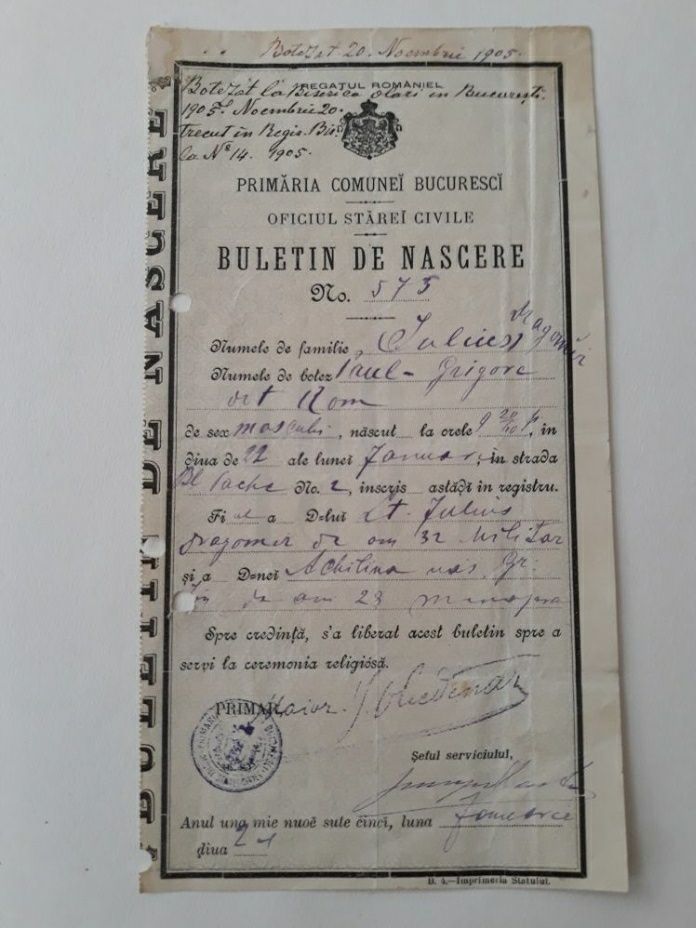 Botezat 20. Noembrie 1905.
REGATUL ROMÂNIEI
Botezat la Biserica Olari in Bucuresti.
1905 Noembrie 20.
trecut in Regis. Bis.
la Nº 14. 1905.
PRIMĂRIA COMUNEĬ BUCURESCĬ
OFICIUL STĂREĬ CIVILE
BULETIN DE NASCERE
BULETIN DE NASCERE
No. 575
Numele de familie Iulius Dragomir
Numele de botez Paul- Grigore
ort Rom
de sex masculin, născut la orele 9, in
diua de 22 ale lunei Januarie, in strada
No. 2, inscris astăḑi in registru.
Fiul a D-lui Lt. Julius
Dragomir de ani 32 Militar
și a D-nei Achilina nas. Gr.
de ani 23 menajera
Spre credință, s'a liberat acest buletin spre a
servi la ceremonia religiósă.
PRIMAR Maior.
Șeful serviciului,
Anul una mie nuoě sute cinci, luna Januarie
ḑiua 24
B. 4.—Imprimeria Statului.